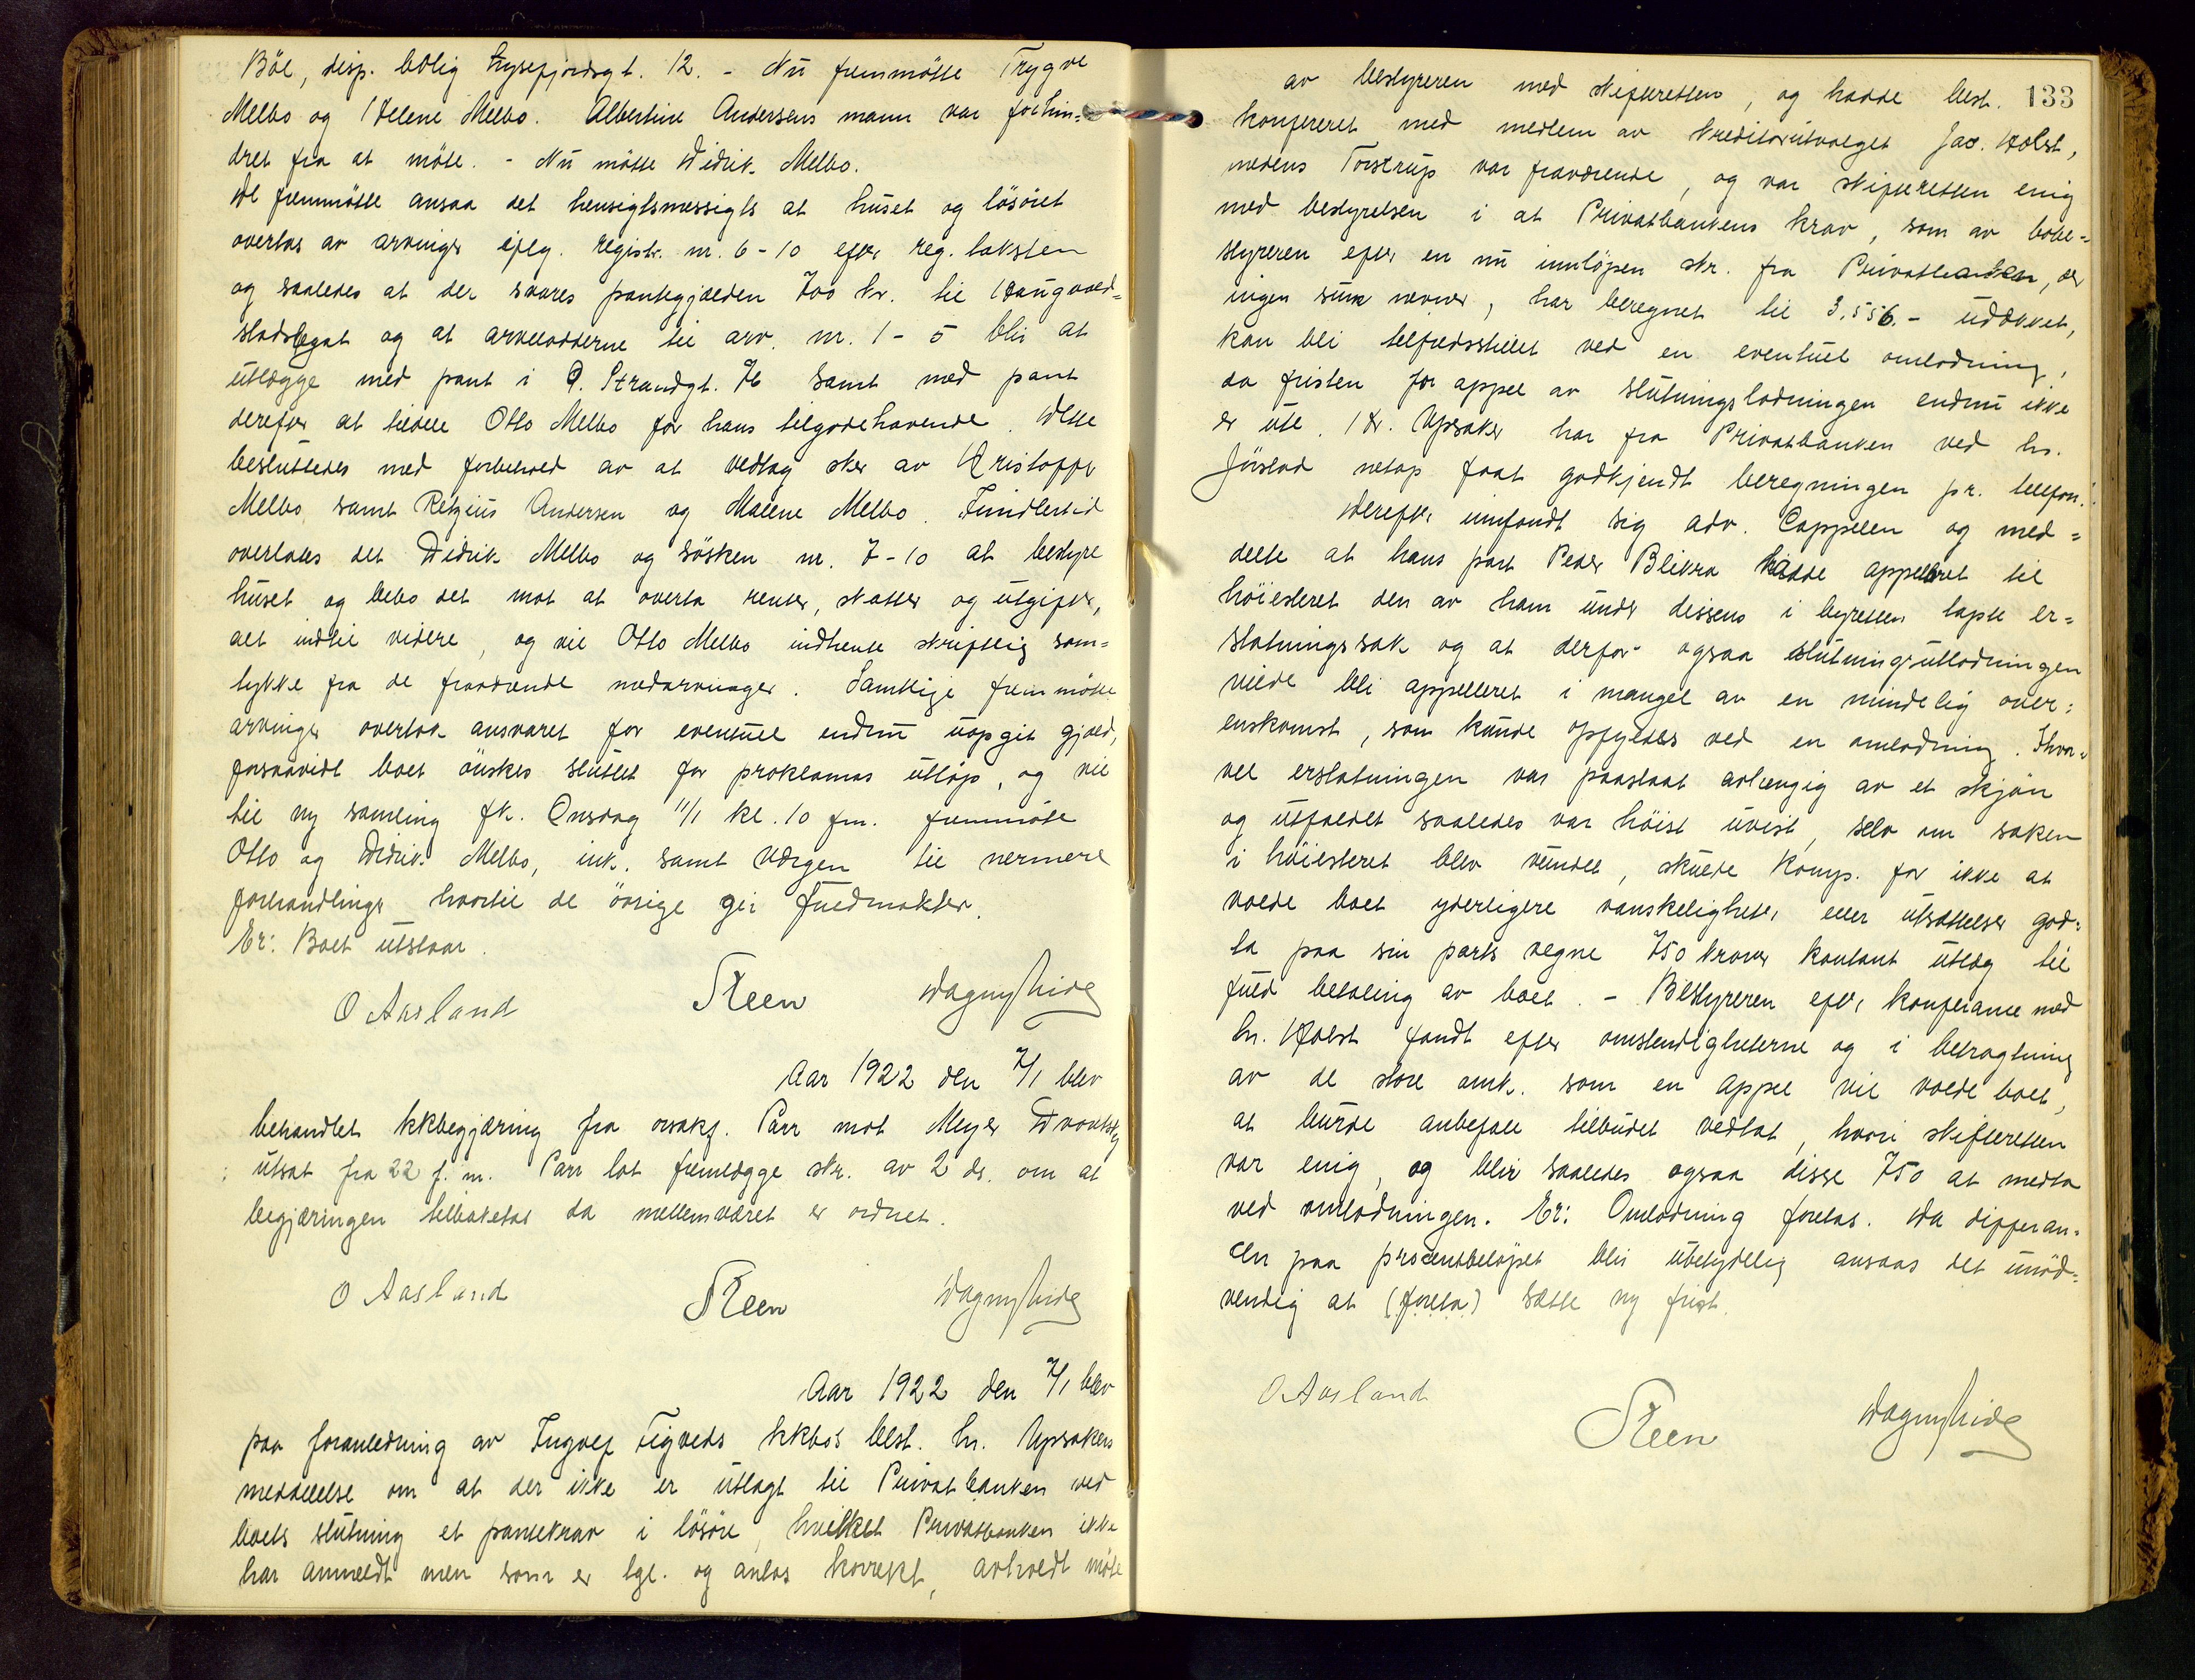 Böe, disp. bolig Lysefjordsgt. 12. - Nu fremmötte Trygve
Melbo og Helene Melbo. Albertine Andersens mann var forhin=
dret fra at möte. - Nu mötte Didrik Melbo.
De fremmötte ansaa det hensigtsmessigts at huset og lösöret
overtas av arvinger iflg. registr. nr. 6-10 efter reg. taksten
og saaledes at der svares pantegjælden 700 kr. til Haugvald=
stadslegat og at arvelodderne til arv. nr. 1-5 blir at
utlægge med pant i Ö. Strandgt. 76 samt med pant
derefter at tildele Otto Melbo for hans tilgodehavende. Dette
besluttedes med forbehold av at vedtag sker av Kristoffer
Melbo samt Retzius Andersen og Malene Melbo. Imidlertid
overlates det Didrik Melbo og sösken nr. 7-10 at bestyre
huset og bebo det mot at overta renter, skatter og utgifter,
alt indtil videre, og vil Otto Melbo indhente skriftlig sam=
tykke fra de fraværende medarvinger. Samtlige fremmötte
arvinger overtok ansvaret for eventuel endnu uopgit gjæld,
forsaavidt boet önskes sluttet før proklamas utløp, og vil
til ny samling fk. Onsdag 11/1 kl. 10 fm. fremmöte
Otto og Didrik Melbo, ink. samt værgen til nærmere
forhandlinger hvortil de övrige gir fuldmakter.
Er: Boet utstaar.
O Aasland Steen Dagny Lide
Aar 1922 den 7/1 blev
behandlet kkbegjæring fra orsakf. Parr mot Meyer Dvoretsky
utsat fra 22 f. m. Parr lot fremlægge skr. av 2 ds. om at
begjæringen tilbaketas da mellemværet er ordnet.
O Aasland Steen Dagny Lide
Aar 1922 den 7/1 blev
paa foranledning av Ingvef Tigveds kkbos best. hr. Upsakers
meddelelse om at der ikke er utlagt til Privatbanken ved
boets slutning et pantekrav i lösöre, hvilket Privatbanken ikke
har anmeldt men som er tgl. og antas korrekt, avholdt möte
133
av bestyreren med skifteretten, og hadde best.
konfereret med medlem av kreditorutvalget Jac. Holst,
medens Torstrup var fraværende, og var skifteretten enig
med bestyrelsen i at Privatbankens krav, som av bobe=
styreren efter en nu innlöpen skr. fra Privatbanken, der
ingen sum nevner, har beregnet til 3.556.- udækket,
kan bli tilfredsstillet ved en eventuel omlodning,
da fristen for appel av slutningslodningen endnu ikke
er ute. Hr. Upsaker har fra Privatbanken ved hr.
Jörstad netop faat godkjendt beregningen pr. telefon.
Derefter innfandt sig adv. Cappelen og med=
delte at hans part Peder Blikra hadde appelleret til
höiesteret den av ham under dissens i byretten tapte er=
statningssak og at derfor ogsaa slutningsutlodningen
vilde bli appelleret i mangel av en mindelig over=
enskomst, som kunde opfyldes ved en omlodning. Ihvor=
vel erstatningen var paastaat avhengig av et skjön
og utfaldet saaledes var höist uvist, selv om saken
i höiesteret blev vundet, skulde komp. for ikke at
volde boet yderligere vanskeligheter eller utsættelser god=
ta paa sin parts vegne 750 kroner kontant utlæg til
fuld betaling av boet. - Bestyreren efter konferance med
hr. Holst fandt efter omstendigheterne og i betragtning
av de store omk. som en appel vil volde boet,
at burde anbefale tilbudet vedtat, hvori skifteretten
var enig, og blir saaledes ogsaa disse 750 at medta
ved omlodningen. Er: Omlodning foretas. Da differan=
cen paa procentbelöpet blir ubetydelig ansaas det unöd=
vendig at (foreta) sætte ny frist.
O Aasland Steen Dagny Lide